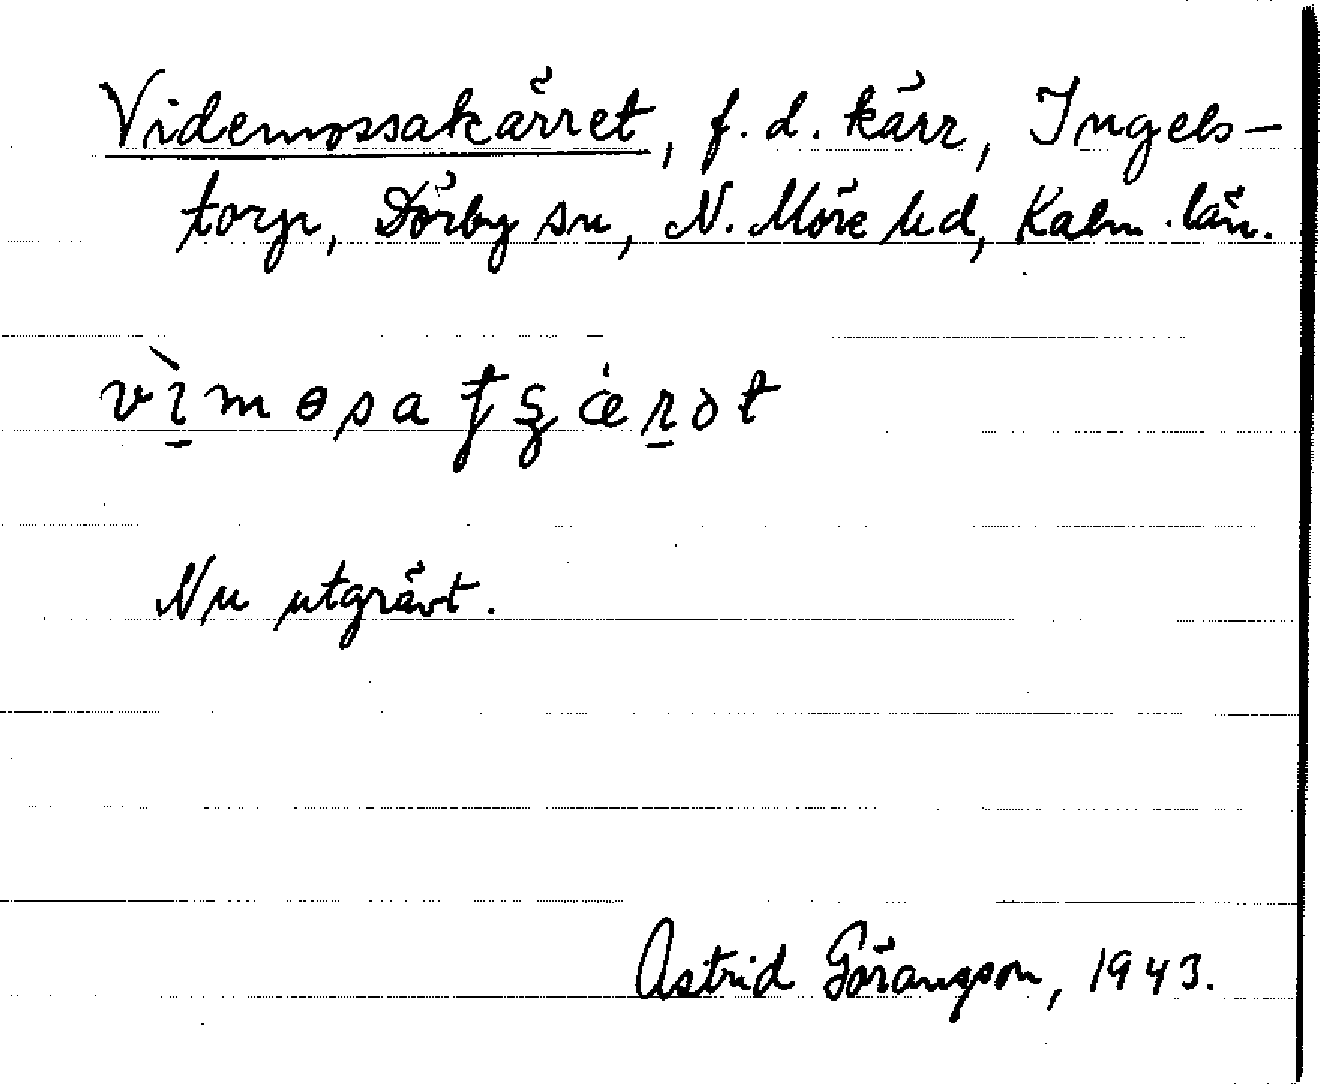 Videmossakärret, f. d. kärr, Ingels-
torp, Dörby sn, N. Möre hd, Kalm. län.
Nu utgrävt.
Astrid Göransson, 1943.